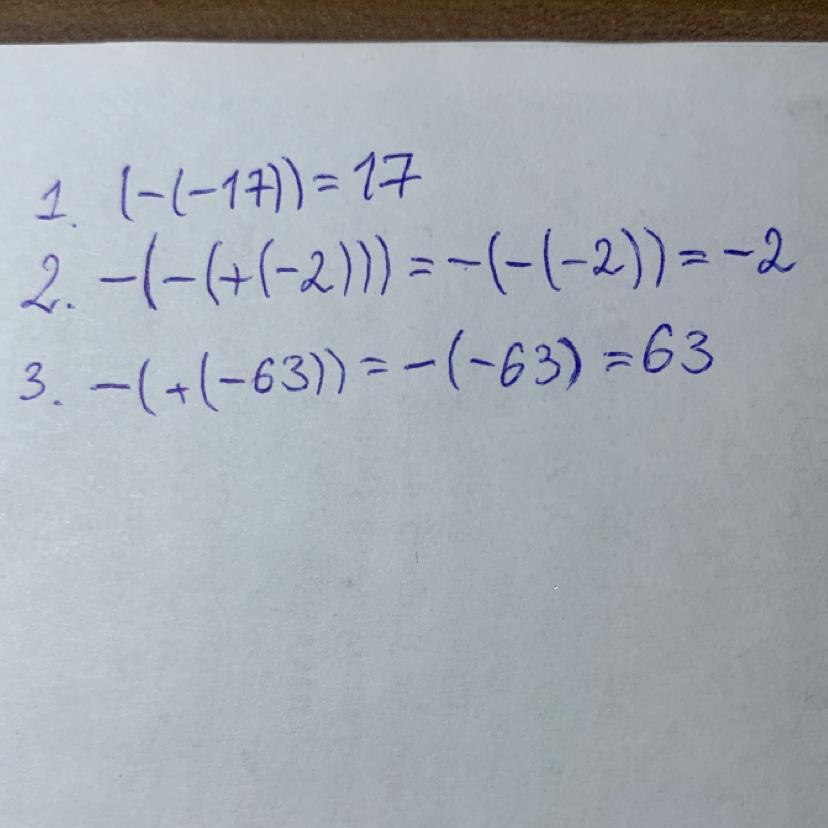 1. (-(-17)) = 17
2. -(-(+(-2))) = -(-(-2)) = -2
3. -(+(-63)) = -(-63) = 63